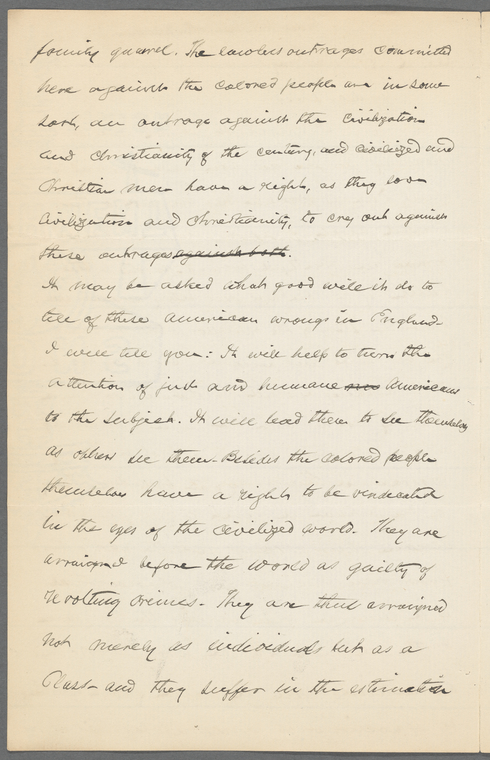 family quarrel. The lawless outrages committed
here against the colored people are in some
sort, an outrage against the civilization
and christianity of the century, and civilized and
Christian men have a right, as they love
civilization and christianity, to cry out against
these outrages against both.
It may be asked what good will it do to
tell of these American wrongs in England.
I will tell you: It will help to turn the
attention of just and humane Americans
to the subject. It will lead them to see themselves
as others see them. Besides the colored people
themselves have a right to be vindicated
in the eyes of the civilized world. They are
arraigned before the world as guilty of
revolting crimes. They are thus arraigned
not merely as individuals but as a
Class – and they suffer in the estimation